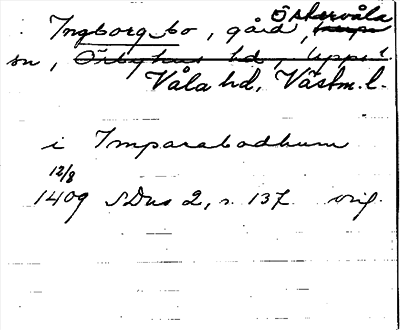 Ingborgbo, gård, Östervåla
sn, Örbyhus hd, Upps. l.
Våla hd, Västm. l.
i Imparabodhum
12/8
1409 SDns 2, s. 137 orig.